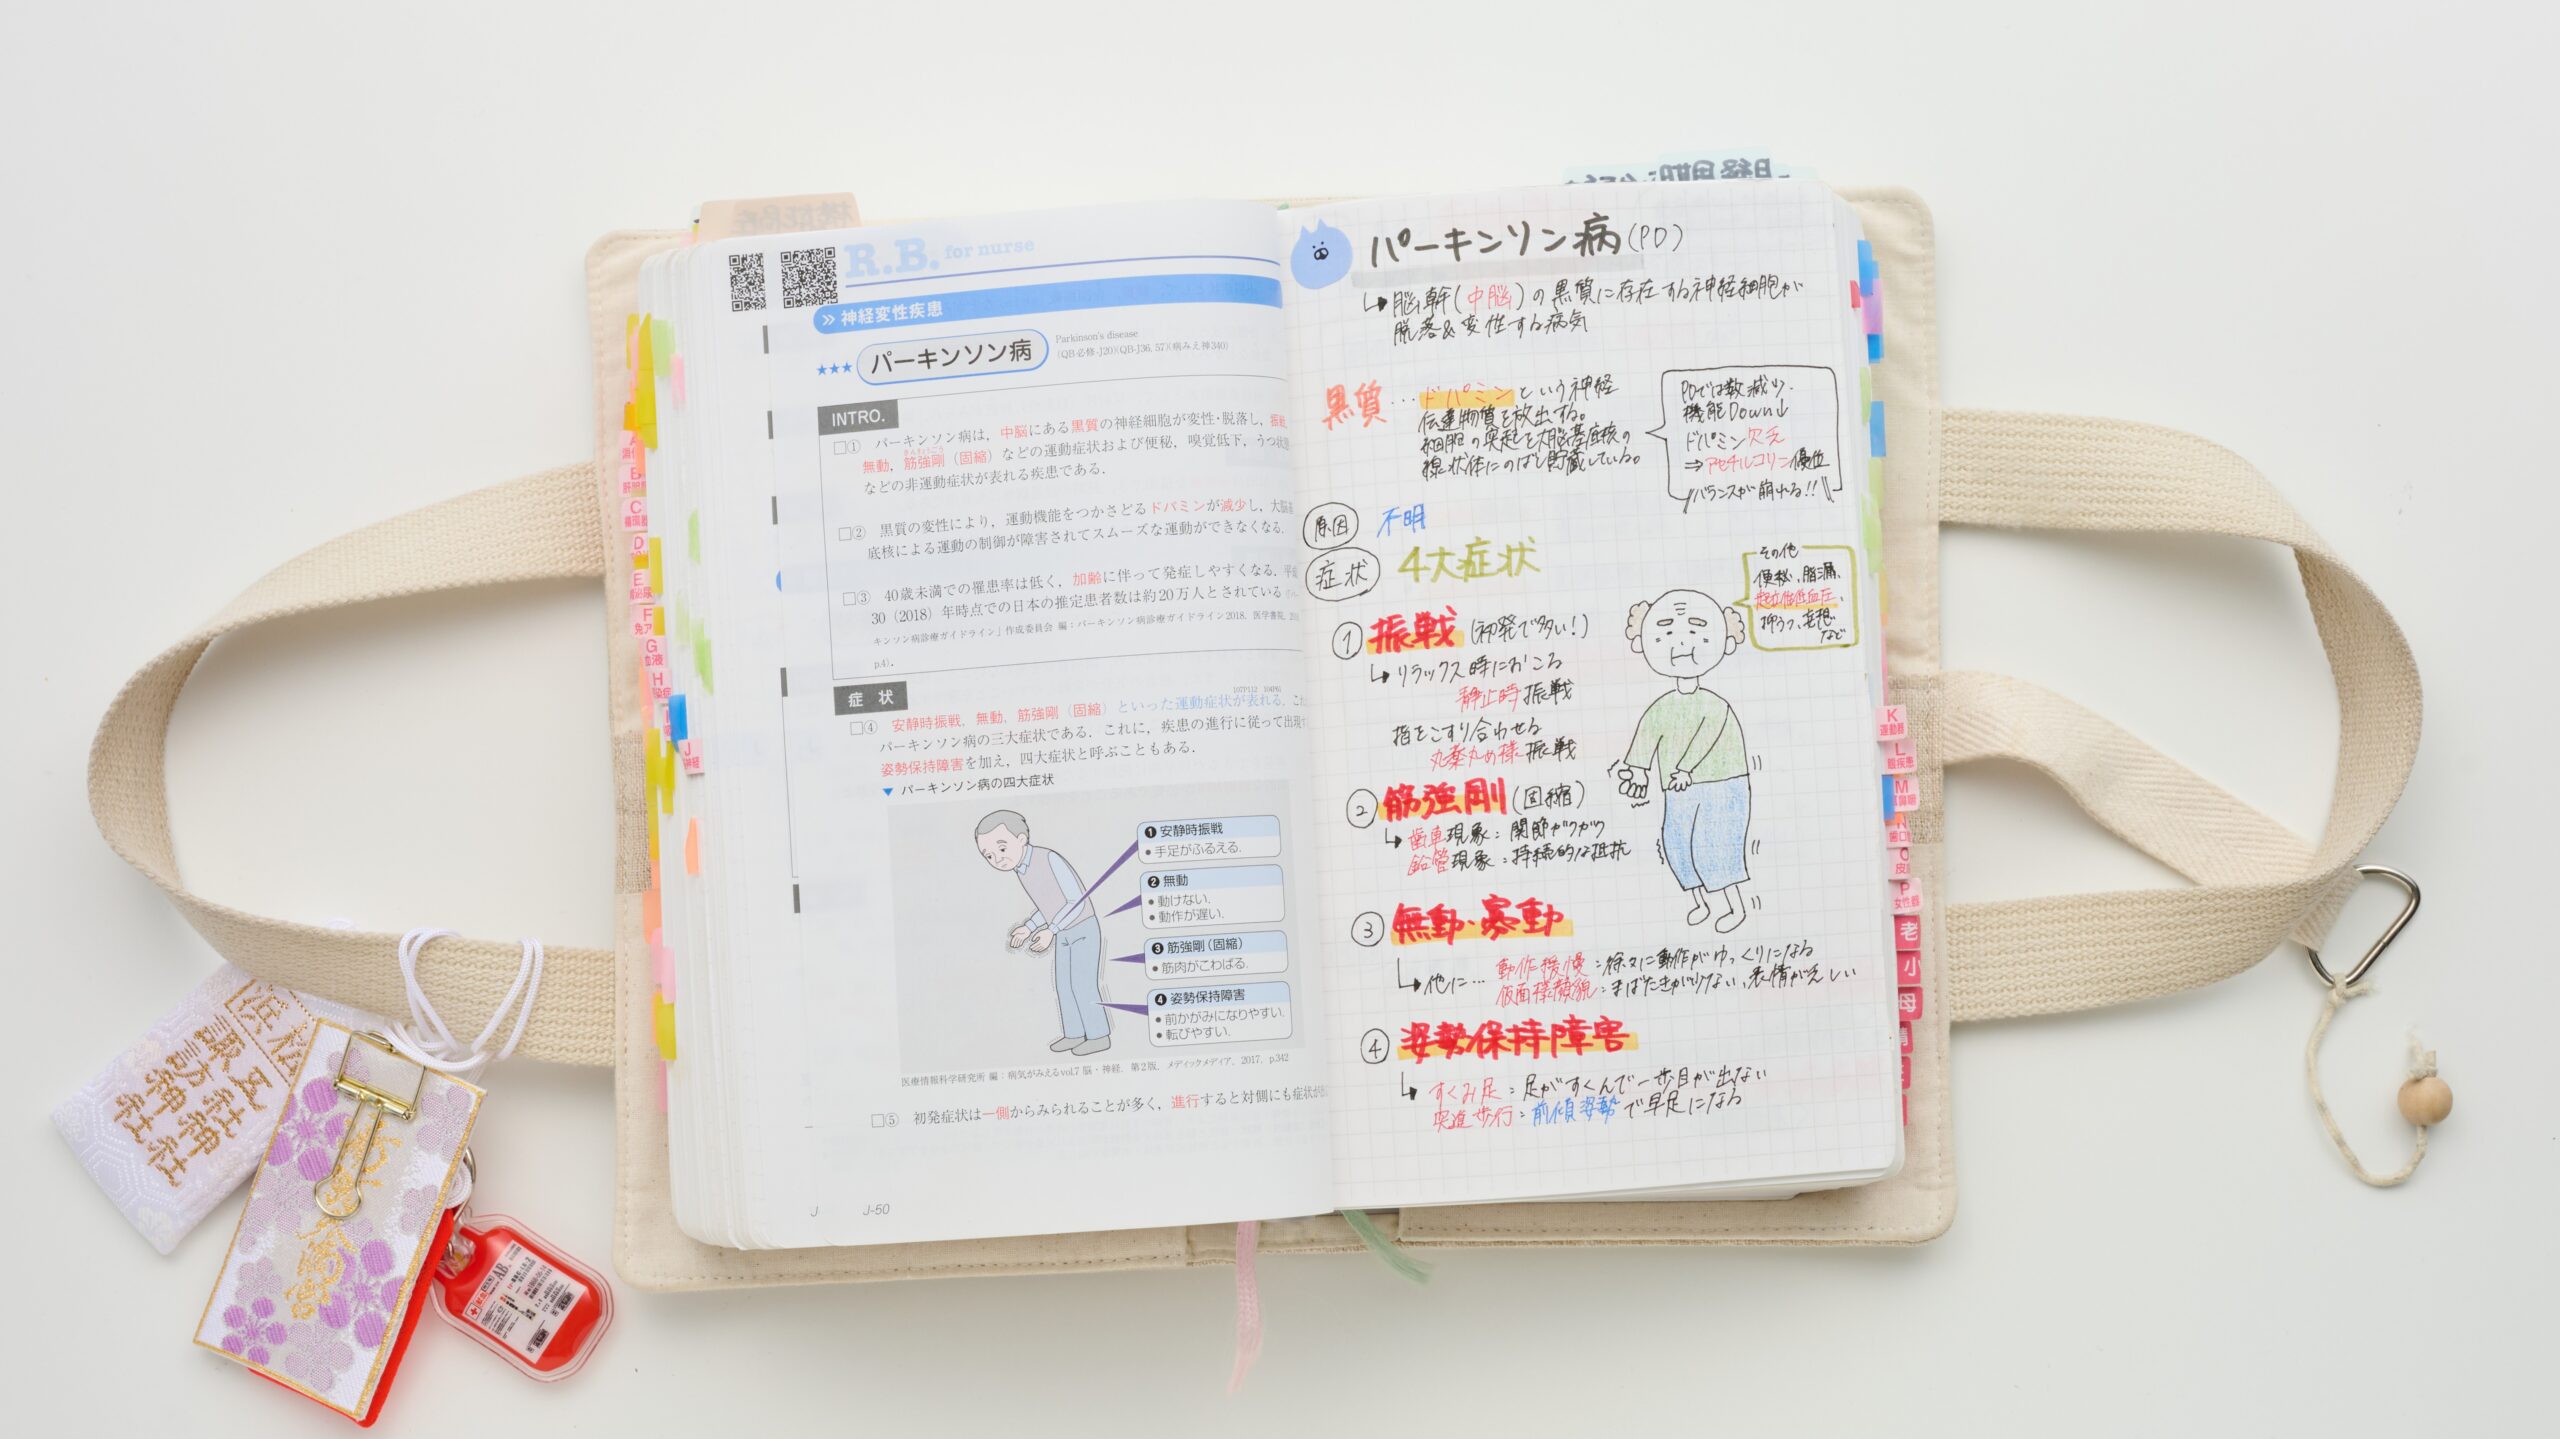 R.B. for nurse
神経変性疾患
★★★ パーキンソン病
Parkinson's disease
(QB必修-J20)(QB-J36, 57)(病みえ神340)
INTRO.
□① パーキンソン病は，中脳にある黒質の神経細胞が変性・脱落し，振戦，
無動，筋強剛（固縮）などの運動症状および便秘，嗅覚低下，うつ状態
などの非運動症状が表れる疾患である．
□② 黒質の変性により，運動機能をつかさどるドパミンが減少し，大脳基
底核による運動の制御が障害されてスムーズな運動ができなくなる．
□③ 40歳未満での罹患率は低く，加齢に伴って発症しやすくなる．平成
30（2018）年時点での日本の推定患者数は約20万人とされている
キンソン病診療ガイドライン」作成委員会 編：パーキンソン病診療ガイドライン2018．医学書院，
p.4）．
症 状
107P112 104P61
□④ 安静時振戦，無動，筋強剛（固縮）といった運動症状が表れる．これ
パーキンソン病の三大症状である．これに，疾患の進行に従って出現す
姿勢保持障害を加え，四大症状と呼ぶこともある．
▼ パーキンソン病の四大症状
❶ 安静時振戦
• 手足がふるえる．
❷ 無動
• 動けない．
• 動作が遅い．
❸ 筋強剛（固縮）
• 筋肉がこわばる．
❹ 姿勢保持障害
• 前かがみになりやすい．
• 転びやすい．
医療情報科学研究所 編：病気がみえるvol.7 脳・神経．第2版，メディックメディア，2017，p.342
□⑤ 初発症状は一側からみられることが多く，進行すると対側にも症状が
J J-50
パーキンソン病(PD)
↳脳幹(中脳)の黒質に存在する神経細胞が
脱落&変性する病気
黒質…ドパミンという神経
伝達物質を放出する。
細胞の突起を大脳基底核の
線状体にのばし貯蔵している。
PDでは数減少.
機能Down↓
ドパミン欠乏
⇒アセチルコリン優位
バランスが崩れる!!
原因 不明
症状 4大症状
その他
便秘、脂漏、
起立性低血圧、
抑うつ、妄想
など
① 振戦(初発で多い!)
↳リラックス時におこる
静止時振戦
指をこすり合わせる
丸薬丸め様振戦
② 筋強剛(固縮)
↳歯車現象：関節がクガク
鉛管現象：持続的な抵抗
③ 無動・寡動
↳他に… 動作緩慢：徐々に動作がゆっくりになる
仮面様顔貌：まばたきが少ない、表情が乏しい
④ 姿勢保持障害
↳すくみ足：足がすくんで一歩目が出ない
突進歩行：前傾姿勢で早足になる
B
C
D
E
F
G
血液
H
J
神経
K
運動器
L
眼疾患
M
O
P
女性器
老
小
母
浜松
五社神社
諏訪神社
AB